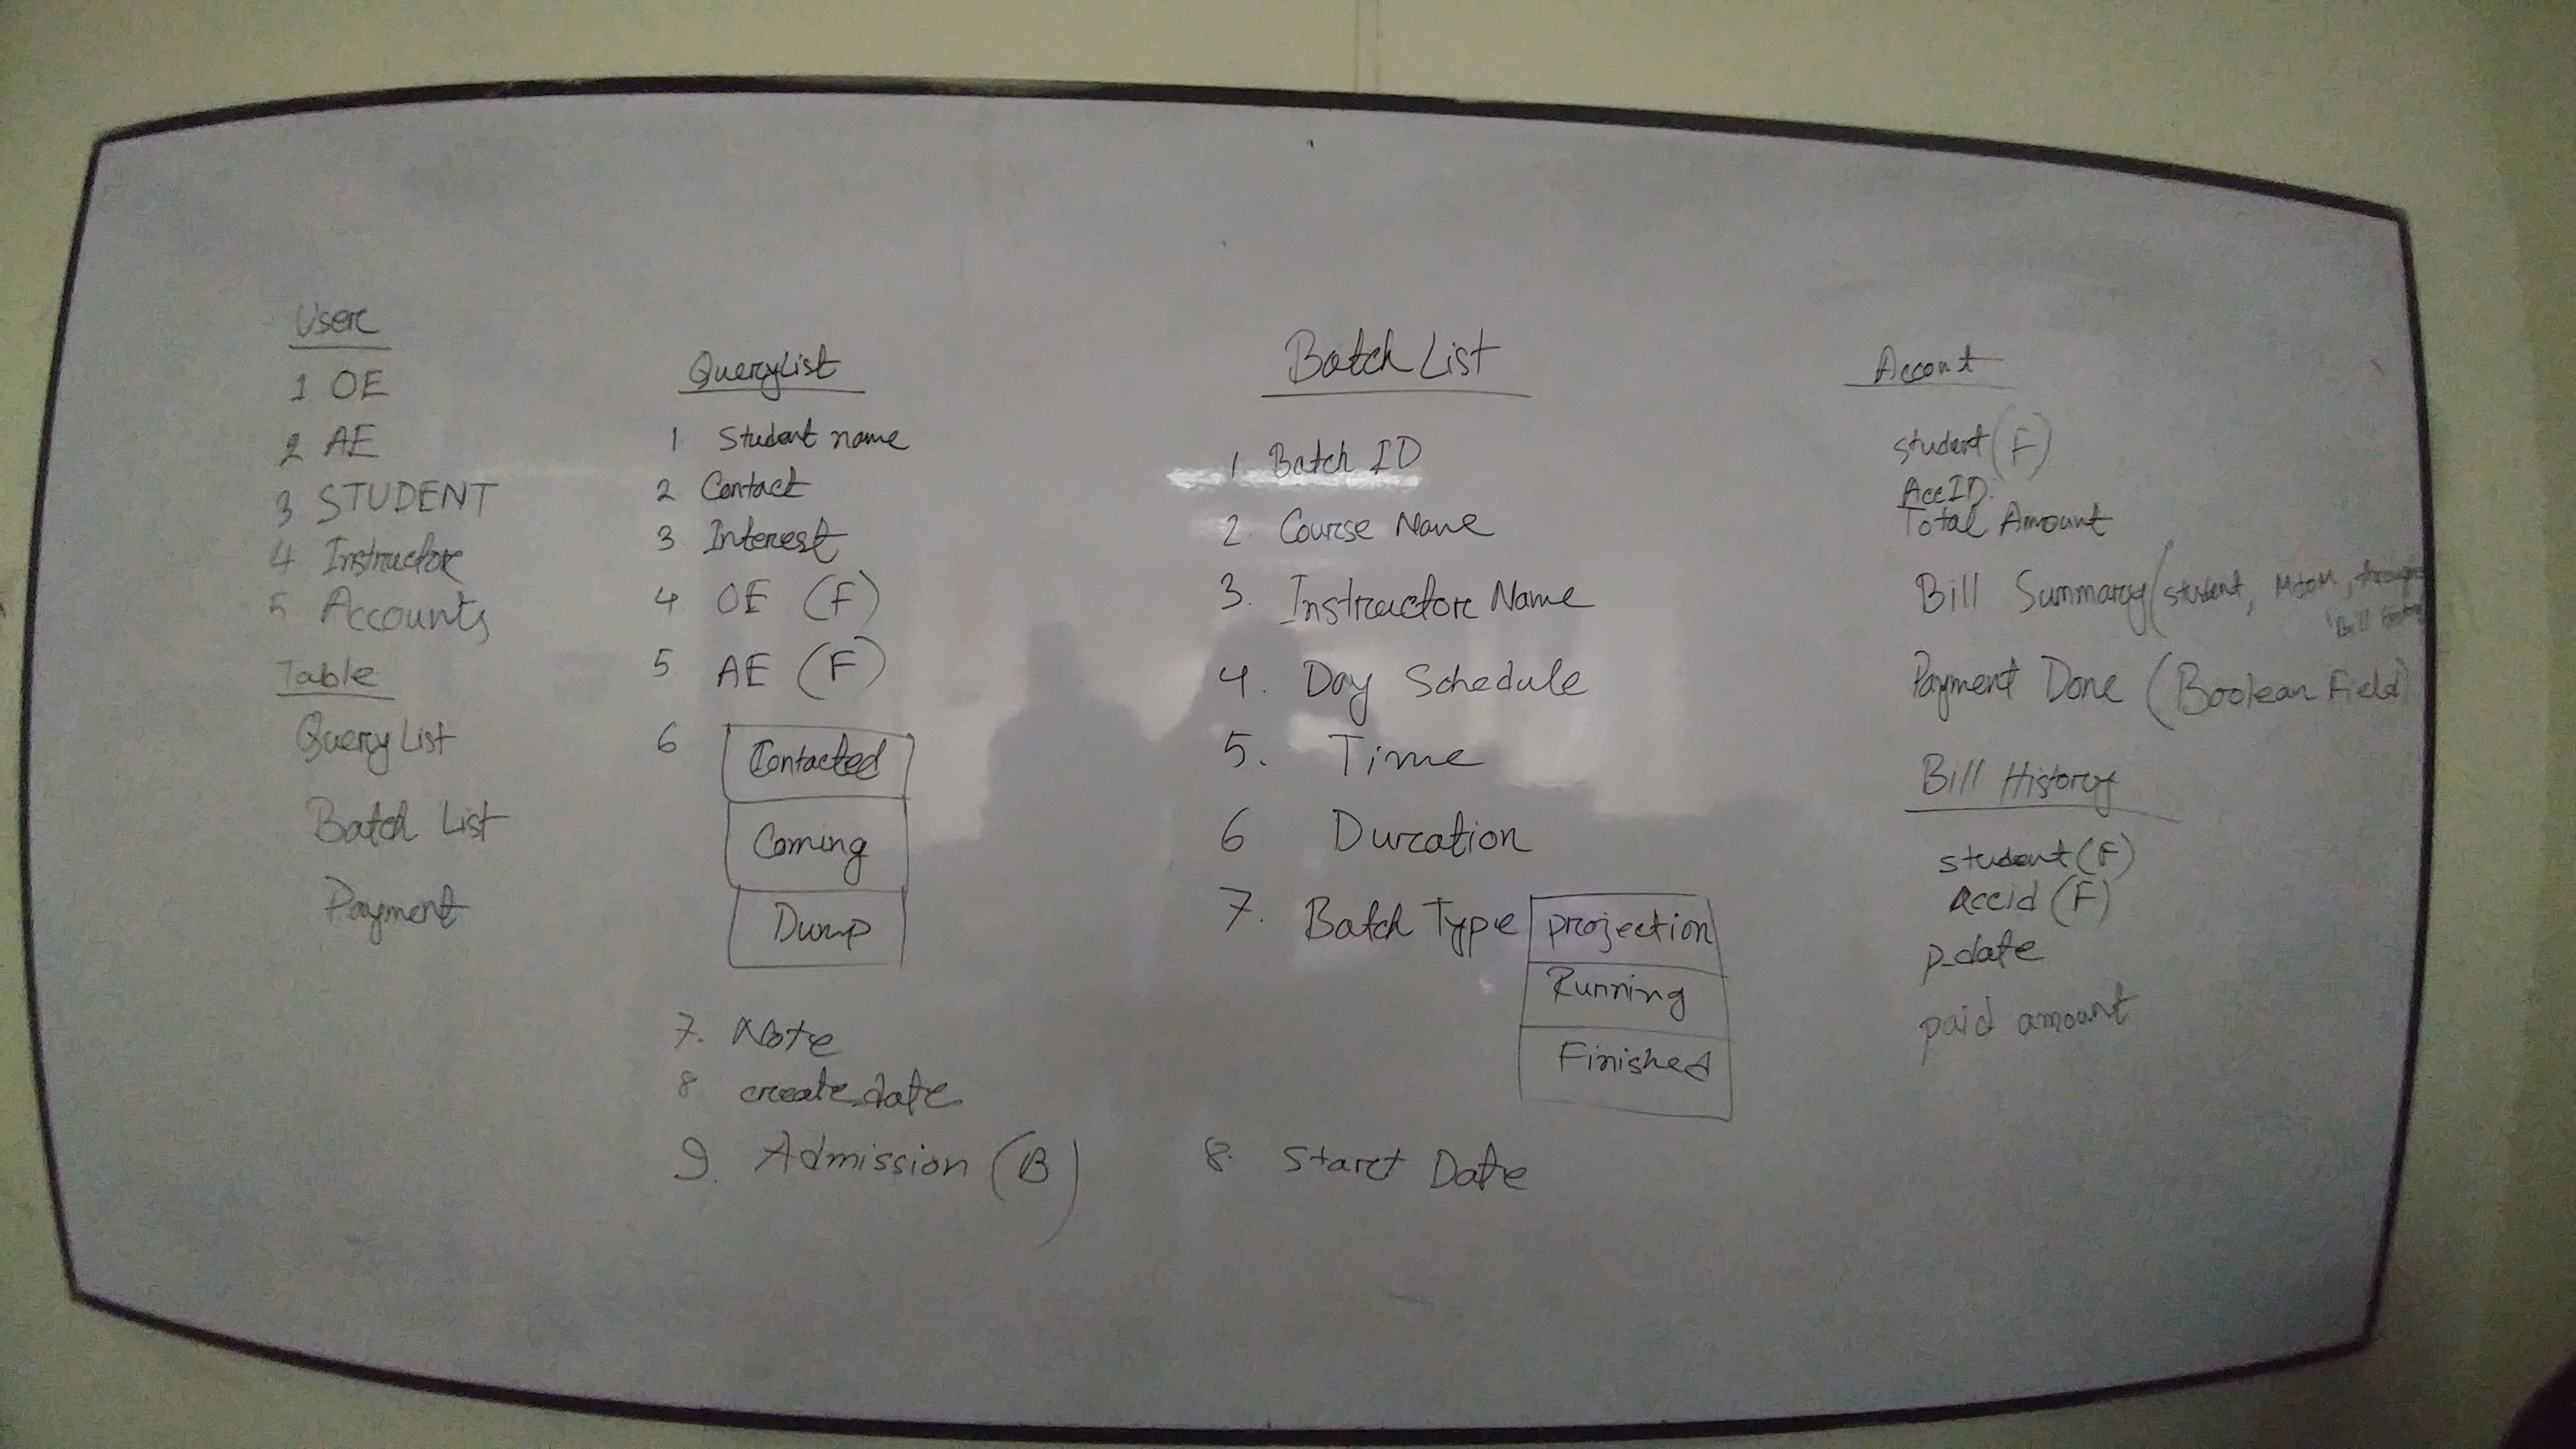 User
1 OE
2 AE
3 STUDENT
4 Instructor
5 Accounts
Table
Query List
Batch List
Payment
QueryList
1 Student name
2 Contact
3 Interest
4 OE (F)
5 AE (F)
6 Contacted
Coming
Dump
7. Note
8 create_date
9. Admission (B)
Batch List
1. Batch ID
2. Course Name
3. Instructor Name
4. Day Schedule
5. Time
6 Duration
7. Batch Type projection
Running
Finished
8. Start Date
Accont
student (F)
AccID
Total Amount
Bill Summary (student, MtoM,
Bill
Payment Done (Boolean Field)
Bill History
student (F)
Accid (F)
p_date
paid amount